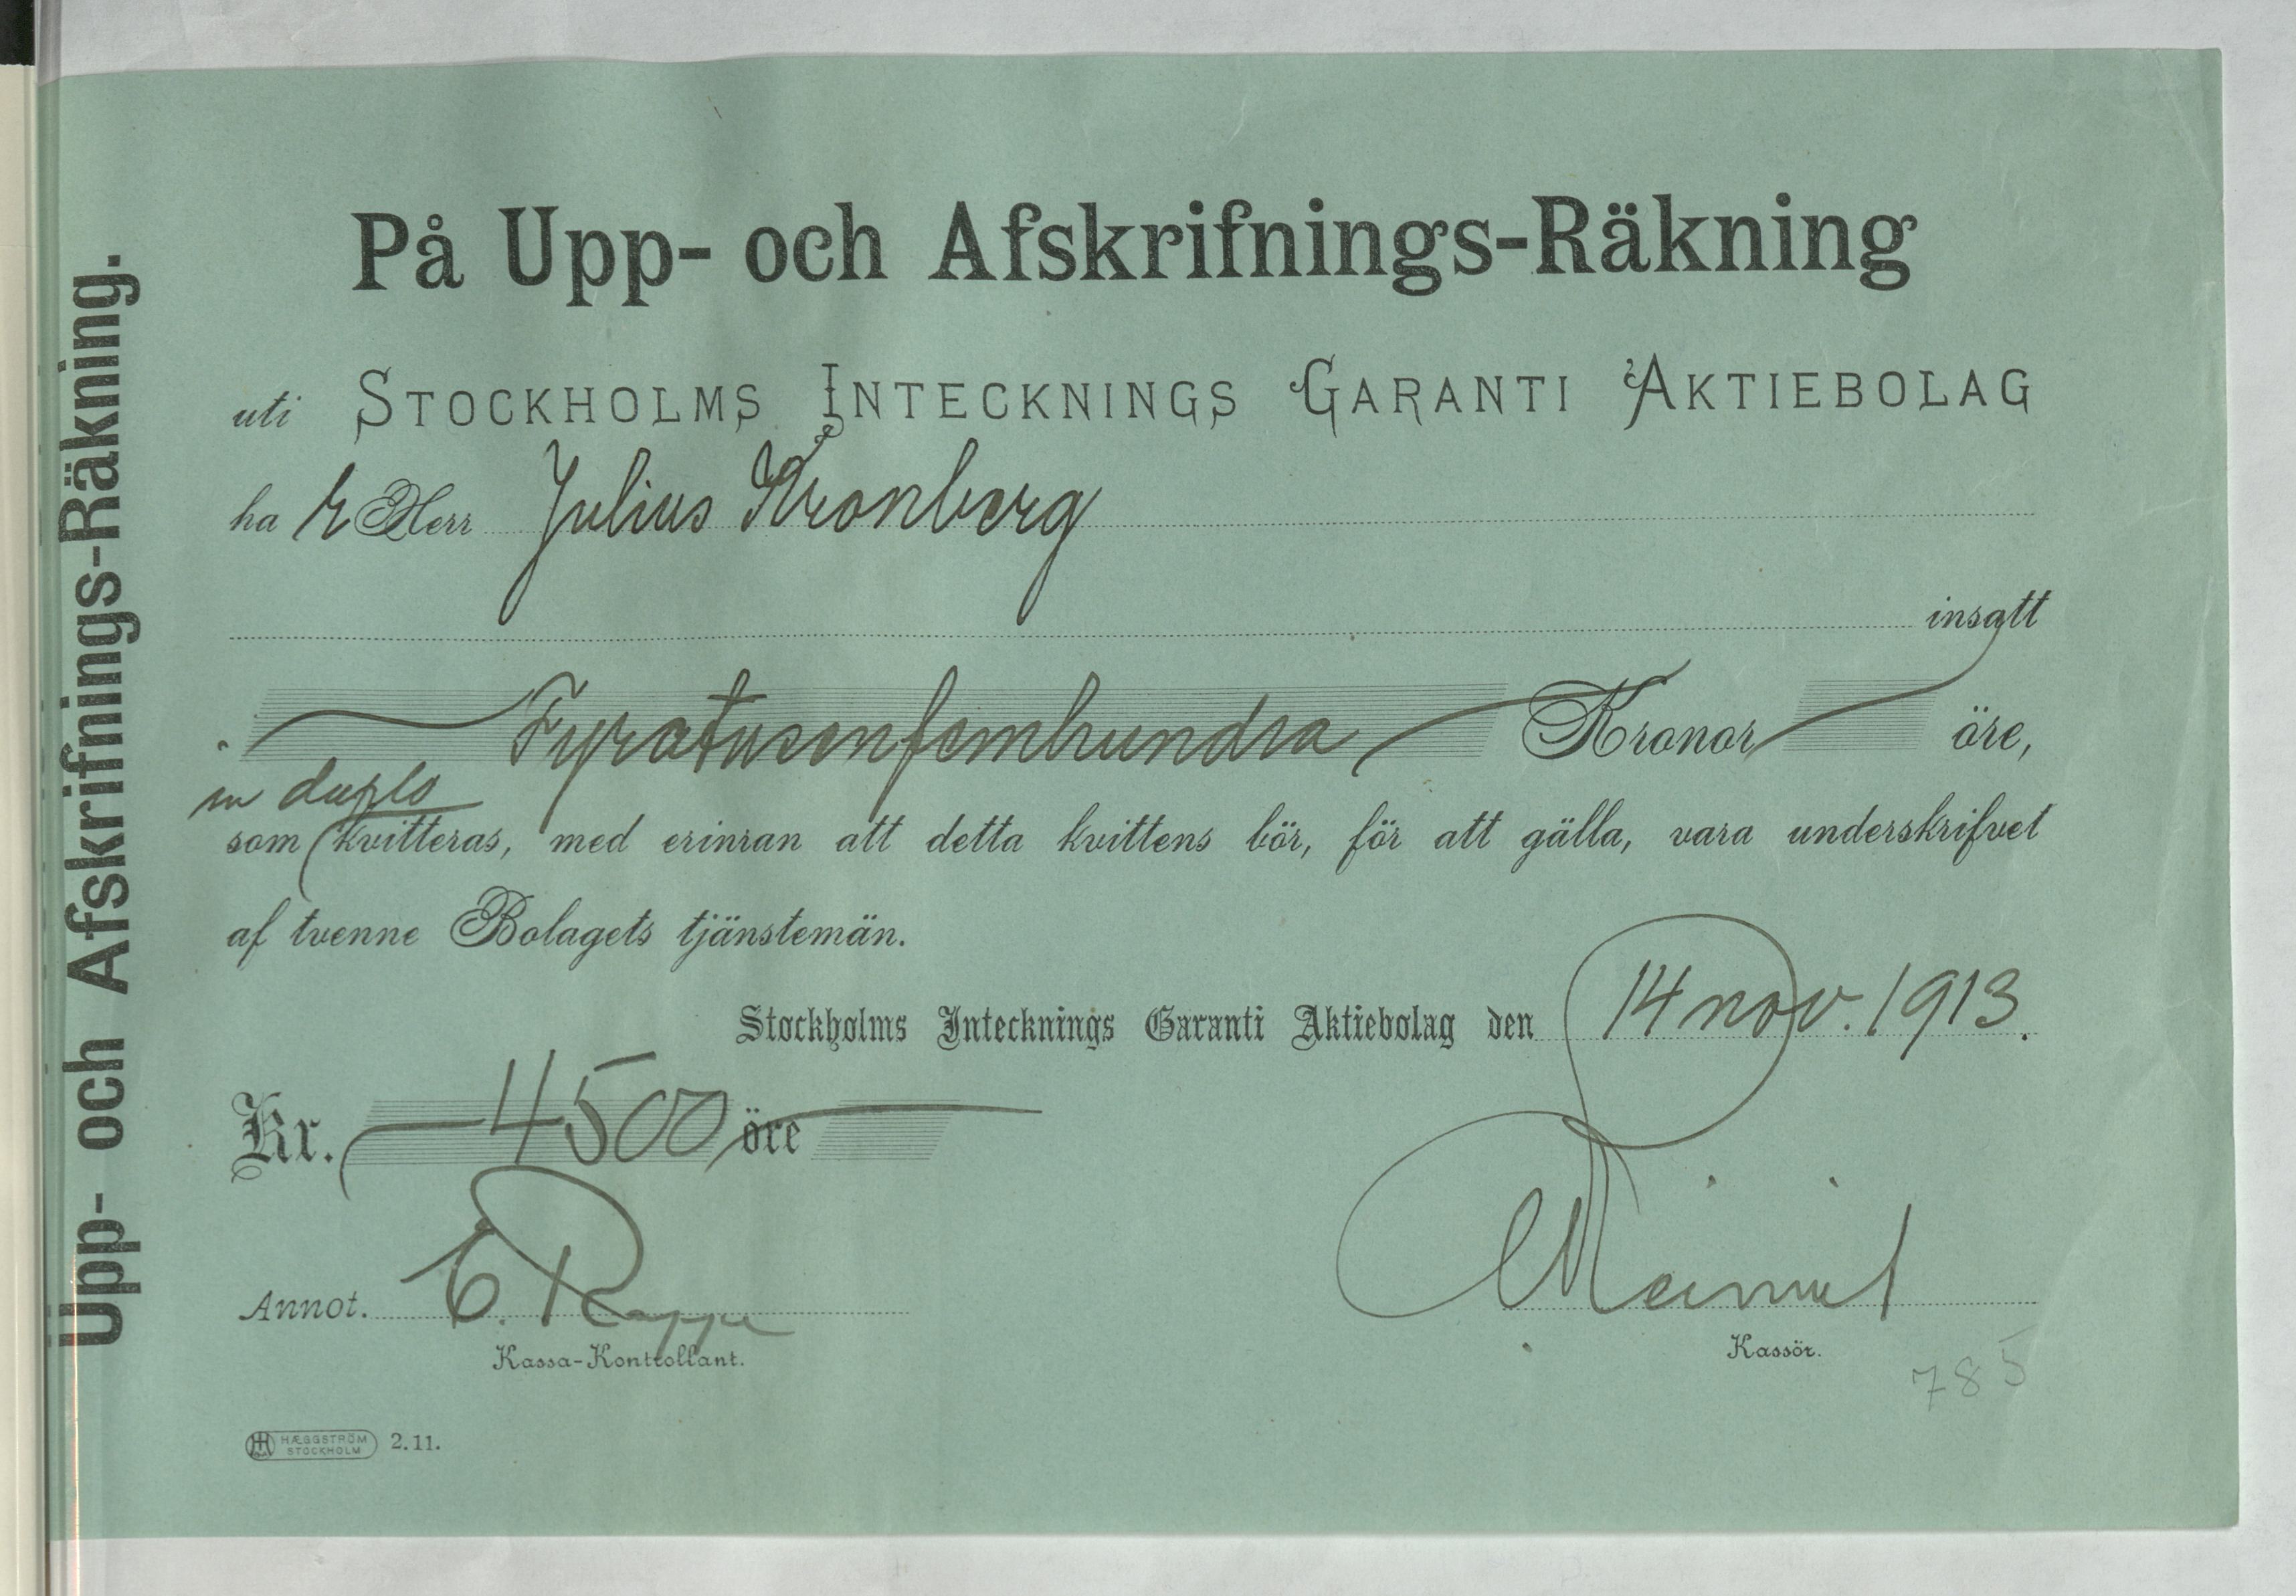 Upp- och Afskrifnings-Räkning.
På Upp- och Afskrifnings-Räkning
uti STOCKHOLMS INTECKNINGS GARANTI AKTIEBOLAG
har Herr Julius Kronberg
insatt
Fyratusenfemhundra Kronor öre,
in duplo
som kvitteras, med erinran att detta kvittens bör, för att gälla, vara underskrifvet
af tvenne Bolagets tjänstemän.
Stockholms Intecknings Garanti Aktiebolag den 14 nov. 1913.
Kr. 4500 öre
Annot. E. Rappe
Kassa-Kontrollant.
Kassör.
785
HÆGGSTRÖM
STOCKHOLM 2.11.